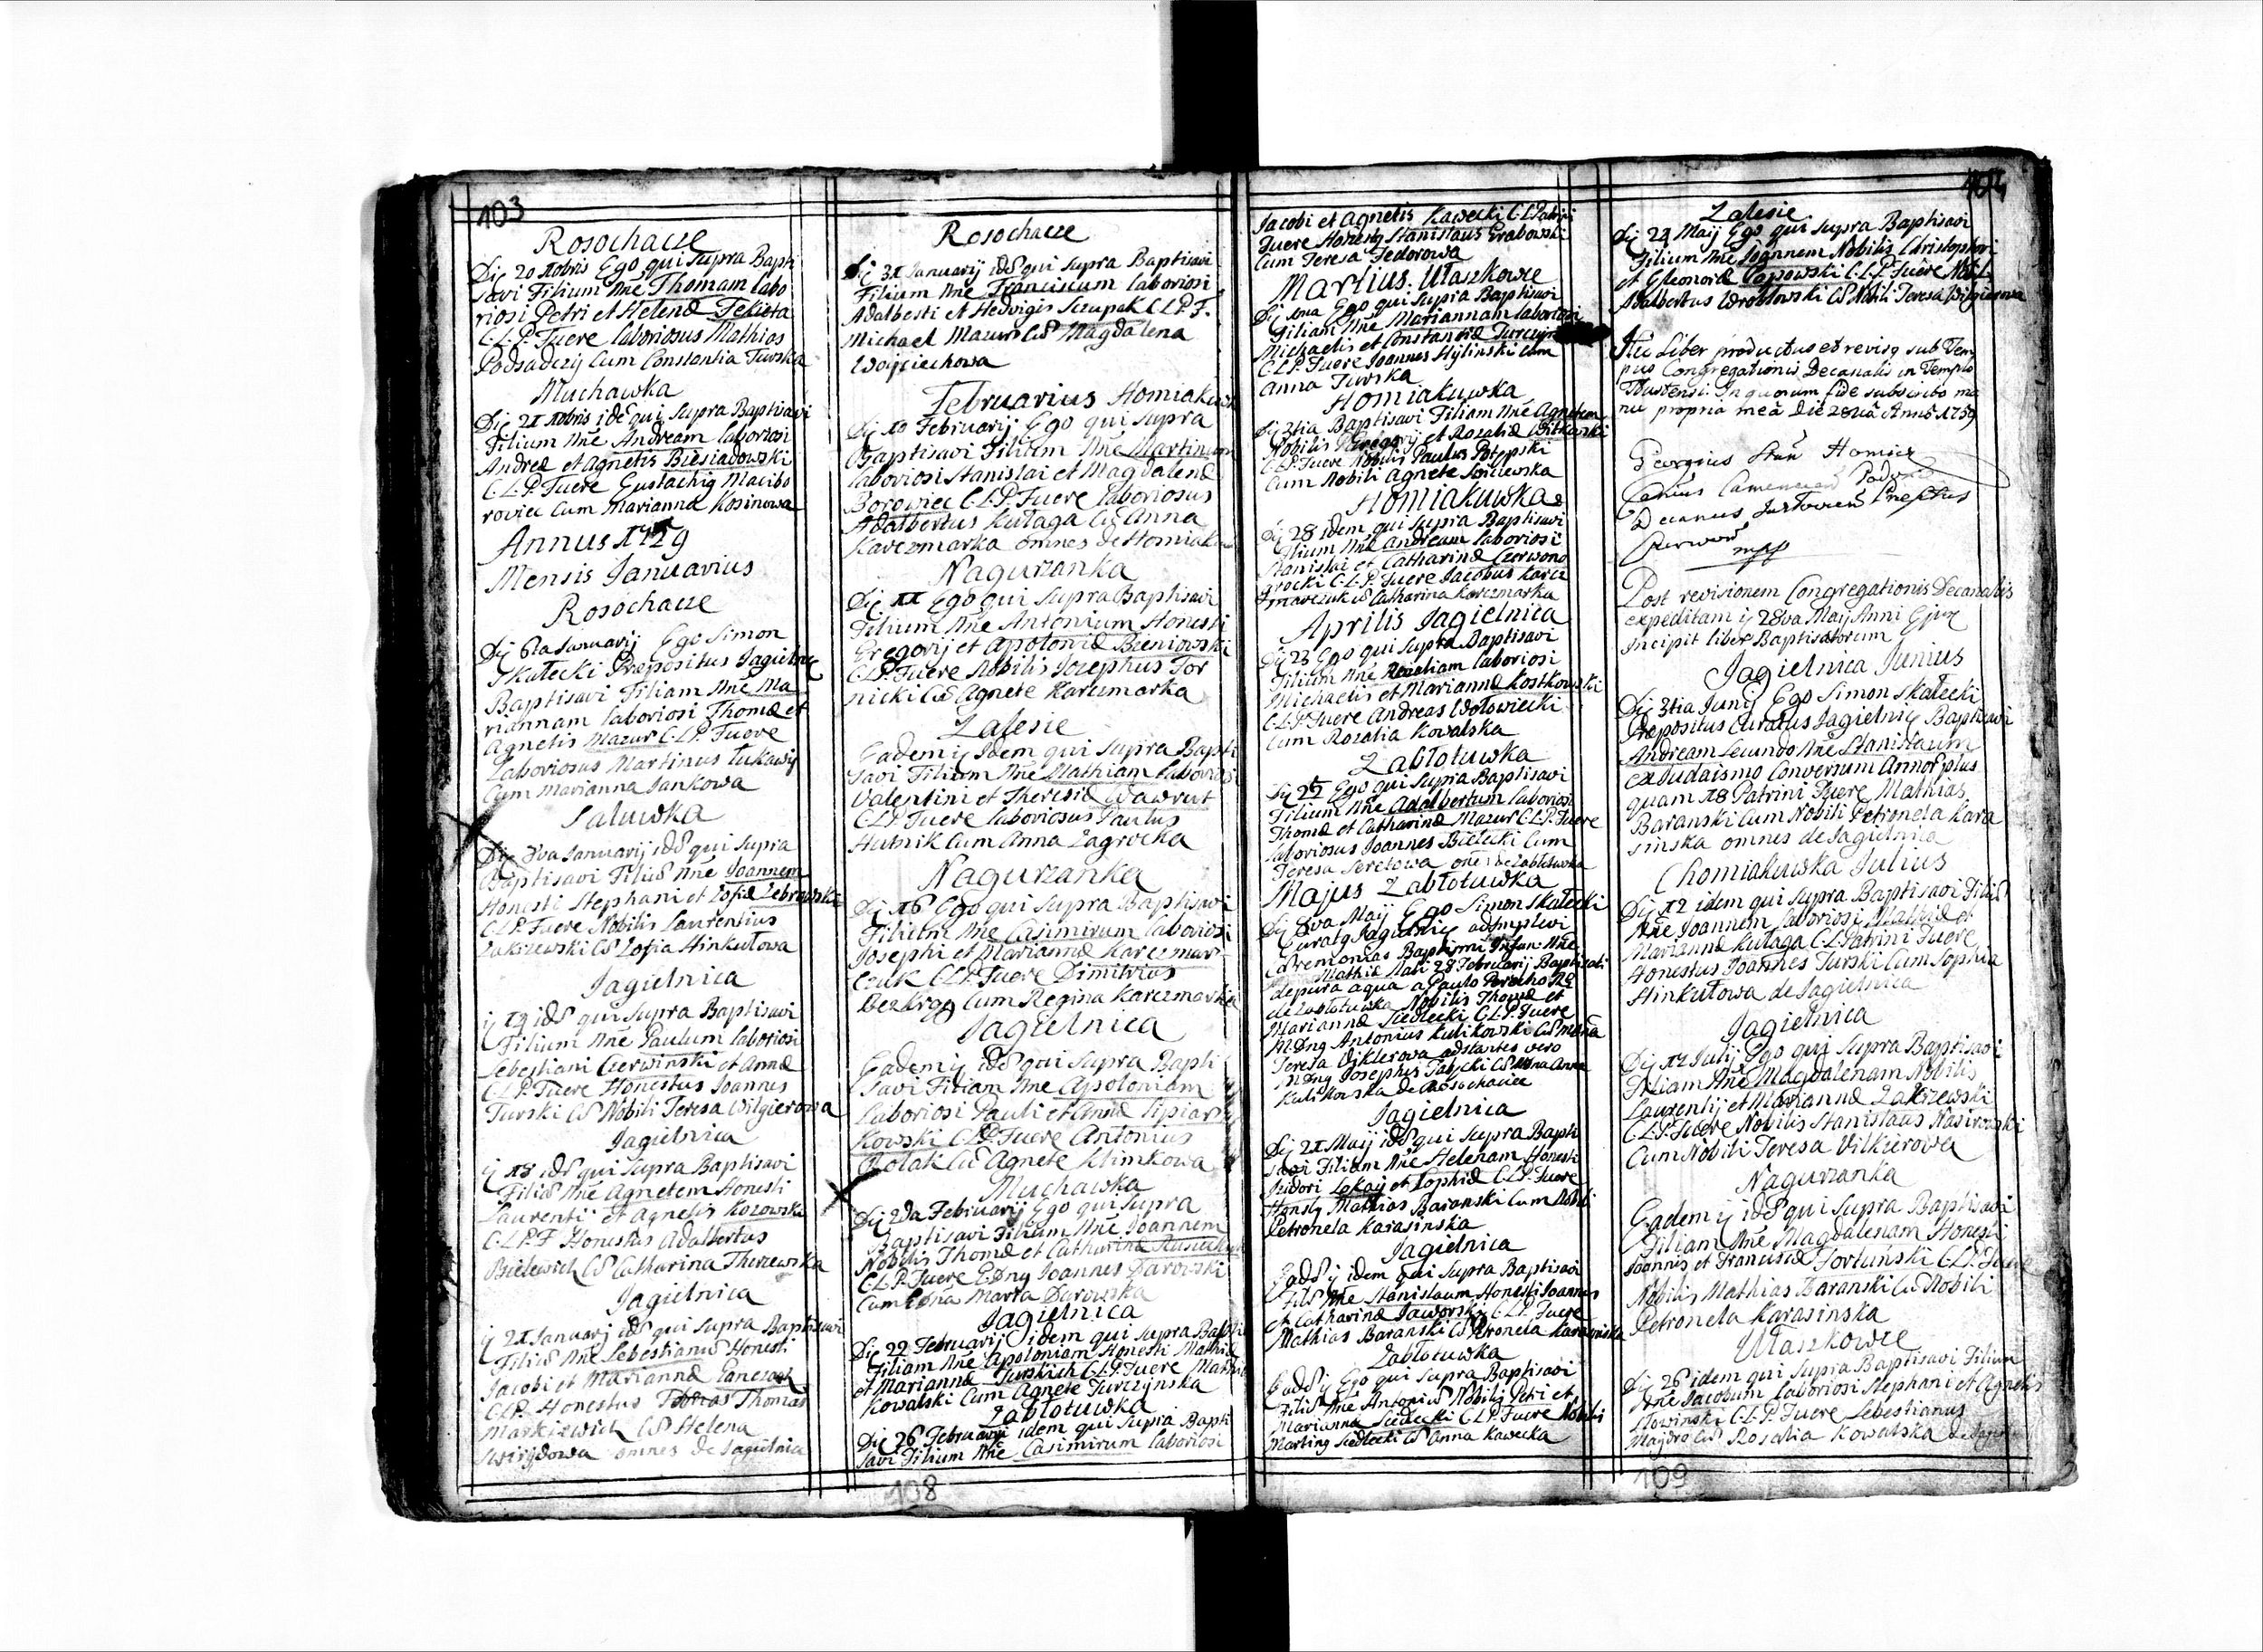 103
Rosochacze
Die 20 Xobris Ego qui supra Bapti
savi Filium Nne Thomam labo
riosi Petri et Helenæ Fekieta
C.L.P. Fuere laboriosus Mathias
Podsadczy Cum Constantia Turska
Muchawka
Die 21 Xobris idē qui supra Baptisavi
Filium Nne Andream laboriosi
Andreæ et Agnetis Biesiadowski
C.L.P. Fuere Eustachiq Macibo
roviec Cum Marianna Kosinowa
Annus 1729
Mensis Januarius
Rosochacze
Die 6ta Januarij Ego Simon
Skałecki Præpositus Jagielnic
Baptisavi Filiam Nne Ma
riannam laboriosi Thomæ et
Agnetis Mazur C.L.P. Fuere
Laboriosus Martinus Łukawij
Cum Marianna Jankowa
Saluwka
Die 8va Januarij idē qui supra
Baptisavi Filiū Nne Joannem
Honesti Stephani et Zofiæ Zebrowski
C.L.P. Fuere Nobilis Laurentius
Zakrzewski Cū Zofia Hinkułowa
Jagielnica
ij 13 idē qui supra Baptisavi
Filium Nne Paulum laboriosi
Sebestiani Czerwinski et Annæ
C.L.P. Fuere Honestus Joannes
Turski Cū Nobili Teresa Wilgierowa
Jagielnica
ij 18 idē qui supra Baptisavi
Filiā Nne Agnetem Honesti
Laurenti et Agnetis Kozowski
C.L.P. F Honestus Adalbertus
Bielewich Cū Catharina Therzewska
Jagielnica
ij 21 Januarij idē qui supra Baptisavi
Filiū Nne Sebestianū Honesti
Jacobi et Mariannæ Ganczach
C.L.P. Honestus Thomas
Markiewich Cū Helena
Swirydowa omnes de Jagielnica
Rosochacze
Die 31 Januarij idē qui supra Baptisavi
Filium Nne Franciscum laboriosi
Adalberti et Hedvigis Sczupak C.L.P. F.
Michael Mazur Cū Magdalena
Woyciechowa
Februarius Homiakuwka
Die 10 Februarij Ego qui supra
Baptisavi Filium Nne Martinum
laboriosi Stanislai et Magdalenæ
Borowiec C.L.P. Fuere laboriosus
Adalbertus Kułaga Cū Anna
Karczmarka omnes de Homiaku
Nagurzanka
Die 11 Ego qui supra Baptisavi
Filium Nne Antonium Honesti
Gregorij et Apoloniæ Bieniowski
C.L.P. Fuere Nobilis Josephus Gor
nicki Cū Agnete Karczmarka
Zalesie
Eadem ij Idem qui supra Bapti
savi Filium Nne Mathiam laboriosi
Valentini et Theresiæ Wawrut
C.L.P. Fuere laboriosus Paulus
Hutnik Cum Anna Zagrocka
Nagurzanka
Die 16 Ego qui supra Baptisavi
Filium Nne Casimirum laboriosi
Josephi et Mariannæ Karczmar
czuk C.L.P. Fuere Dimitrius
Cum Regina Karczmarka
Jagielnica
Eadem ij idē qui supra Bapti
savi Filiam Nne Apoloniam
Laboriosi Pauli et Annæ Sipiar
kowski C.L.P. Fuere Antonius
Polak Cū Agnete Klimkowa
Muchawka
Die 2da Februarij Ego qui supra
Baptisavi Filium Nne Joannem
Nobilis Thomæ et Catharinæ
C.L.P. Fuere G.Dnq Joannes Darowski
Cum Gdna Marta Darowska
Jagielnica
Die 22 Februarij idem qui supra Bapti
Filiam Nne Apoloniam Honesti Mathiæ
et Mariannæ Turskich C.L.P. Fuere Mathias
Kowalski Cum Agnete Turczynska
Zabłotuwka
Die 26 Februarij idem qui supra Bapti
savi Filium Nne Casimirum laboriosi
108
104
Jacobi et Agnetis Kawecki C.L. Patrini
Fuere Honestq Stanislaus Grabowski
Cum Teresa Fedorowa
Martius. Ułaszkowce
Die Ego qui supra Baptisavi
Filiam Nne Mariannam laboriosi
Michaelis et Constantiæ Turczyn
C.L.P. Fuere Joannes Hylinski Cum
Anna Turska
Homiakuwka
Die 3tia Baptisavi Filiam Nne Agnetem
Nobilis Gregorij et Rozaliæ Witkowski
C.L.P. Fuere Nobilis Paulus Potępski
Cum Nobili Agnete
Homiakuwka
Die 28 idem qui supra Baptisavi
Filium Nne Andream laboriosi
Stanislai et Catharinæ Czerwono
grocki C.L.P. Fuere Jacobus Karcz
marczuk Cū Catharina Karczmarka
Aprilis Jagielnica
Die 23 Ego qui supra Baptisavi
Filiam Nne Rozaliam laboriosi
Michaelis et Mariannæ Kostkowski
C.L.P. Fuere Andreas Wołowiecki
Cum Rozalia Kowalska
Zabłotuwka
Die 25 Ego qui supra Baptisavi
Filium Nne Adalbertum laboriosi
Thomæ et Catharinæ Mazur C.L.P. Fuere
laboriosus Joannes Bielecki Cum
Teresa Seretowa oñes de Zabłotuwka
Majus Zabłotuwka
Die 8va Maij Ego Simon Skałecki
Curatq Jagielnic adimplevi
Cæremonias Baptismi Infan: Nne
Mathiæ Nati 28 Februarij Baptisati
de pura aqua a Paulo Parocho
de Zabłotuwka Nobilis Thomæ et
Mariannæ Siedlecki C.L.P. Fuere
M.Dnq Antonius Kulikowski Cū Mdna
Teresa Wiklerowa adstantes vero
M.Dnq Josephus Cū Mdna Anna
Kulikowska de Rosochacze
Jagielnica
Die 21 Maij idē qui supra Bapti
savi Filiam Nne Helenam Honesti
Isidori Lokay et Sophiæ C.L.P. Fuere
Honestq Mathias Baranski Cum Nobili
Petronela Karasinska
Jagielnica
Eadē ij idem qui supra Baptisavi
Filiū Nne Stanislaum Honesti Joannis
et Catharinæ Jaworski C.L.P. Fuere
Mathias Baranski Cū Petronela Karasinska
Zabłotuwka
Eadē ij Ego qui supra Baptisavi
Filiū Nne Antoniū Nobilis Petri et
Marianna Siedlecki C.L.P. Fuere Nobilis
Martinq Siedlecki Cū Anna Kawecka
Zalesie
Die 24 Maij Ego qui supra Baptisavi
Filium Nne Joannem Nobilis Christophori
et Eleonoræ C.L.P. Fuere Nobil
Adalbertus Wroblowski Cū Nobili Teresa Wilgierowa
Hic Liber productus et revisq sub Tem
pus Congregationis Decanalis in Templo
Tłustensi. In quorum fide subscribo ma
nu propria meā Die 28va Anno 1729
Georgius Homicz
Canus Camenecen
Decanus
Czerwon
mpp
Post revisionem Congregationis Decanalis
expeditam ij 28va Maij Anni Ejus
incipit liber Baptisatorum
Jagielnica Junius
Die 3tia Junij Ego Simon Skałecki
Præpositus Curatus Jagielnic Baptisavi
Andream Secundo Nne Stanisłaum
ex Judaismo Conversum Annor plus
quam 18 Patrini Fuere Mathias
Baranski Cum Nobili Petronela Kara
sinska omnes de Jagielnica
Chomiakuwka Julius
Die 12 idem qui supra Baptisavi Filiū
Nne Joannem laboriosi Mathiæ et
Mariannæ Kułaga C.L. Patrini Fuere
Honestus Joannes Turski Cum Sophia
Hinkułowa de Jagielnica
Jagielnica
Die 17 Julij Ego qui supra Baptisavi
Filiam Nne Magdalenam Nobilis
Laurentij et Mariannæ Zakrzewski
C.L.P. Fuere Nobilis Stanislaus Nasirowski
Cum Nobili Teresa Vilkurowa
Nagurzanka
Eadem ij idē qui supra Baptisavi
Filiam Nne Magdalenam Honesti
Joannis et Franciscæ Fortunski C.L.P. Fuere
Nobilis Mathias Baranski Cū Nobili
Petronela Karasinska
Ułaszkowce
Die 26 idem qui supra Baptisavi Filium
Nne Jacobum laboriosi Stephani et Agnetis
Słowinski C.L.P. Fuere Sebestianus
Cū Rosalia Kowalska
109